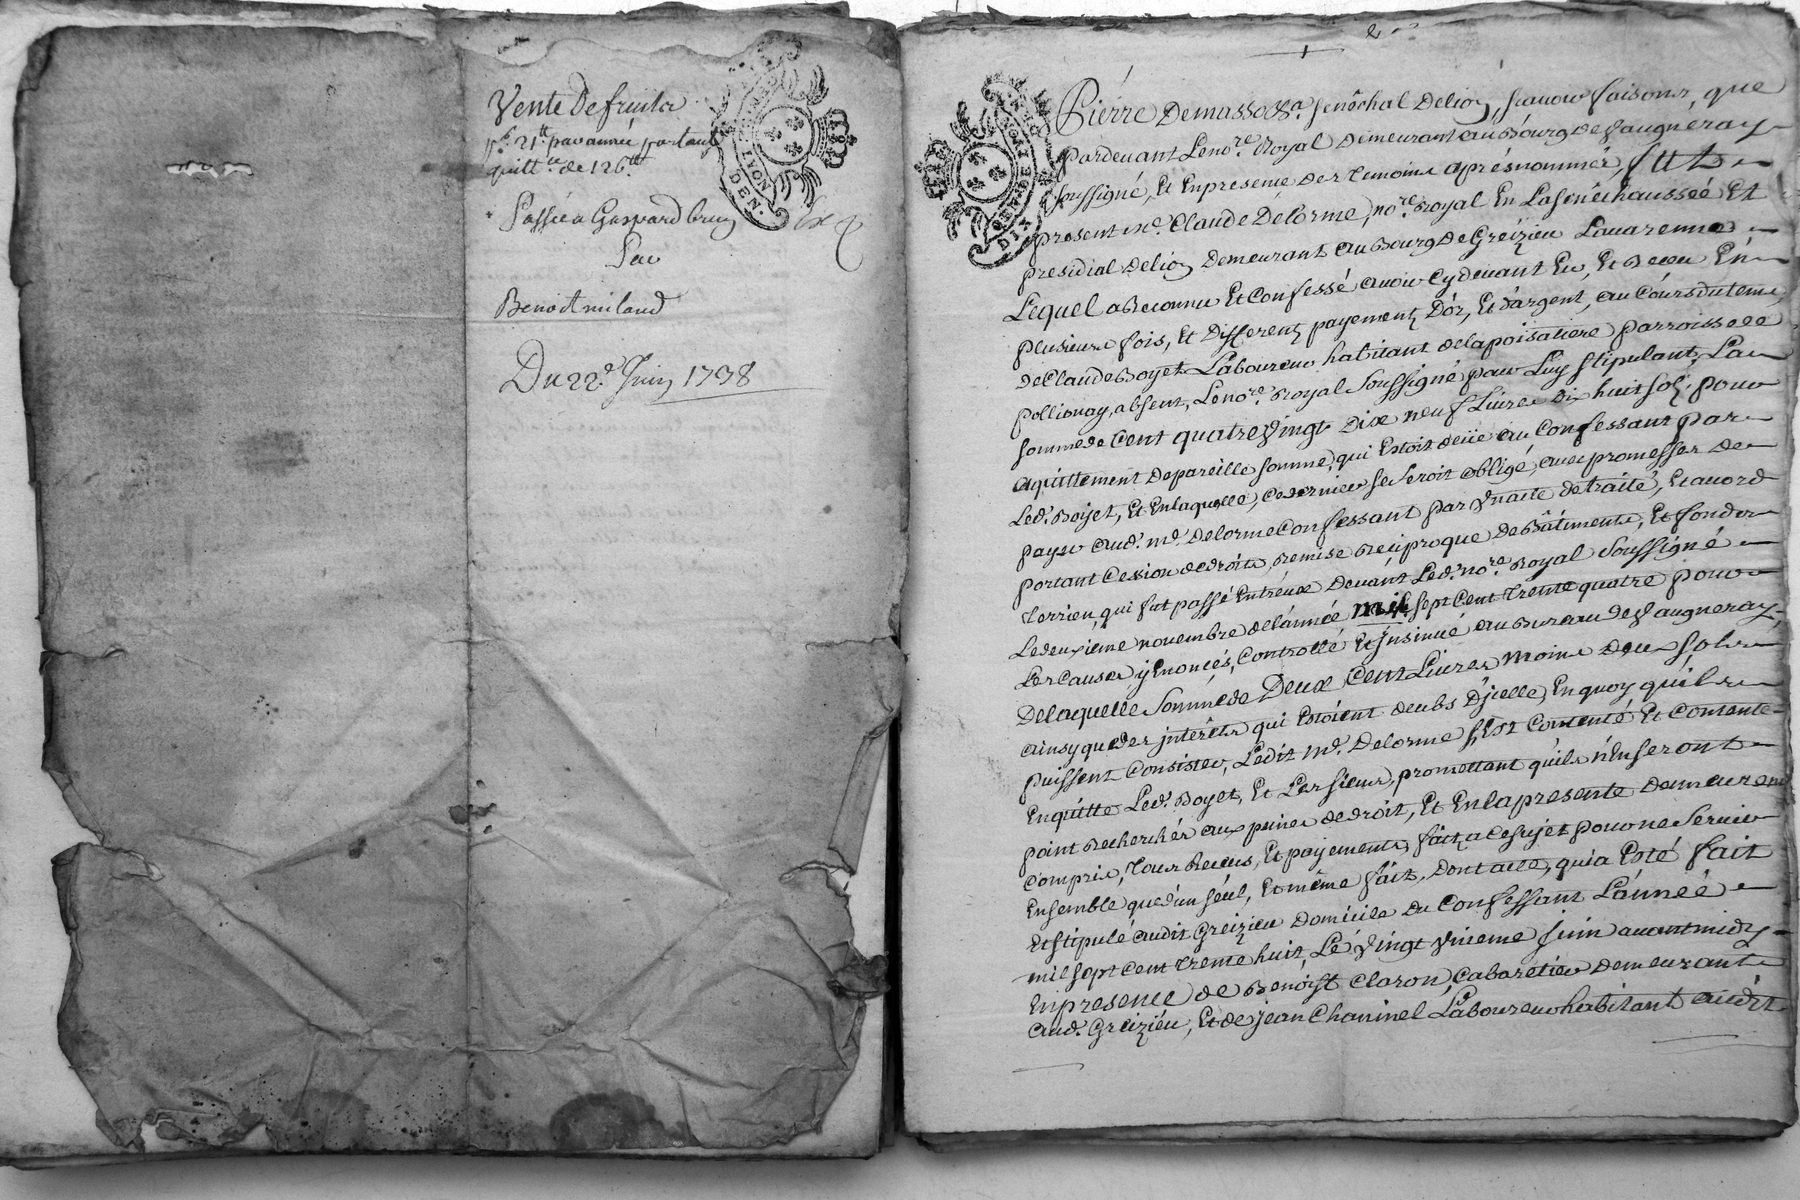 Vente De fruits
pr. 21tt. par année portant
quittce. de 126tt.
Passée a Gaspard
Par
Benoit milaud
Du 22e. Juin 1738
LYON
DEN.
2
Pierre Demasso &a. senêchal Delion, scavoir faisons, que
pardevant Lenore. Royal Demeurant au Bourg de Vaugneray
soussigné, Et Enpresence des temoins aprésnommés, fut
present Me. Claude Delorme, nore. Royal En Lasenéchaussée Et
presidial Delion Demeurant au Bourg De Greizieu Lavarenne
Lequel a Reconnu Et Confessé avoir Cydevant Eu, Et Receu En
plusieurs fois, Et Differents payements D'or, Et d'argent, au Cours du tems,
de Claude Boyet Laboureur habitant de la poisatiere parroisse de
pollionay, absent, Lenore. Royal Soussigné pour Luy stipulant, La
somme de Cent quatre Vingt Dix neuf Livres Dix huit sols, pour
aquittement De pareille somme, qui Estoit deüe au Confessant par
Led. Boyet, Et En laquelle, Ce dernier se Seroit obligé, avec promesses de
payer aud. Me. Delorme Confessant par Vn acte de traité, Et accord
portant Cession de droits, Remise Reciproque de Bâtiments, Et fonds
Terriens, qui fut passé Entr'eux Devant Led. nore. Royal Soussigné
Le deuxieme novembre de l'année mil sept Cent trente quatre pour
Les Causes y Enoncés, Controllé Et Insinué au Bureau de Vaugneray,
De laquelle Somme de Deux Cent Livres moins deux sols
ainsy que des interêts qui Estoient deubs D'icelle, En quoy qu'ils
puissent Consister, Ledit Me. Delorme s'Est Contenté Et Contente
En quitte Led. Boyet, Et Les siens, promettant qu'ils n'En seront
point Recherchés aux peines de droit, Et En la presente demeurent
Compris, tous Recus, Et payements faits a Ce sujet pour ne Servir
Ensemble que d'un seul, Et même fait, Dont acte, qui a Esté fait
Et stipulé audit Greizieu Domicile Du Confessant L'année
mil sept Cent trente huit, Le Vingt Vnieme juin avant midy
En presence de Benoist Claron, Cabaretier demeurant
aud. Greizieu, Et de jean Chaninel Laboureur habitant audit